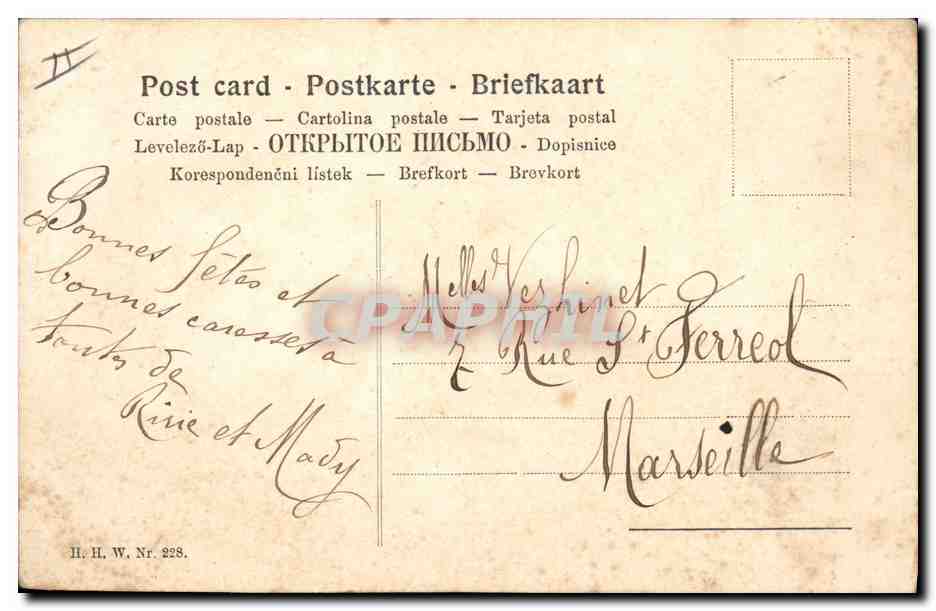 II
Post card - Postkarte - Briefkaart
Carte postale — Cartolina postale — Tarjeta postal
Levelező-Lap - ОТКРЫТОЕ ПИСЬМО - Dopisnice
Korespondenčni lístek — Brefkort — Brevkort
Bonnes fêtes et
bonnes caresses à
toutes de
Ririe et Mady
Melles Verhinet
7 Rue St Ferreol
Marseille
CPAPHIL
H. H. W. Nr. 228.